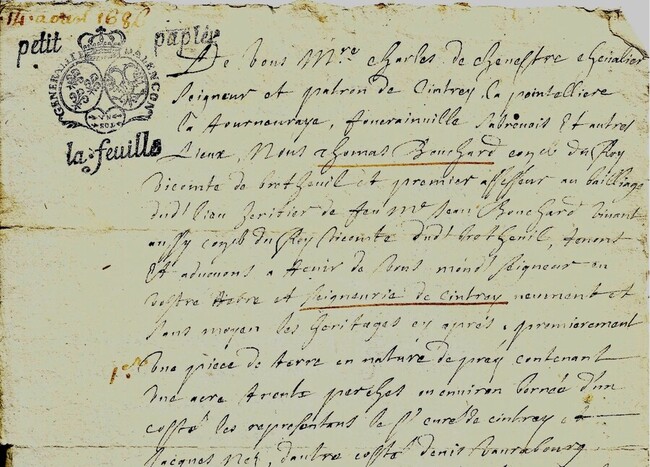 14 aoust 168
petit papier
GENERALITE DALENCON
la feuille
De Vous Mre Charles de Chenestre chevalier
Seigneur et patron de Cintray la pointelliere
la tourneuraye, et autres
Lieux, Nous Thomas Bouchard du Roy
Viconte de bretheuil et premier assesseur au bailliage
dud' lieu heritier de feu Me Jean Bouchard vivant
aussy du Roy Viconte dud' bretheuil, tenons
Et advouons a tenir de vous mond' seigneur
vostre et seigneurie de Cintray nuement et
sans moyen les heritages cy apres, premierement
Une piece de terre en nature de prey contenant
une acre trente perches ou environ bornée d'un
costé les representant le Sr curé de cintray
Jacques d'autre costé denis